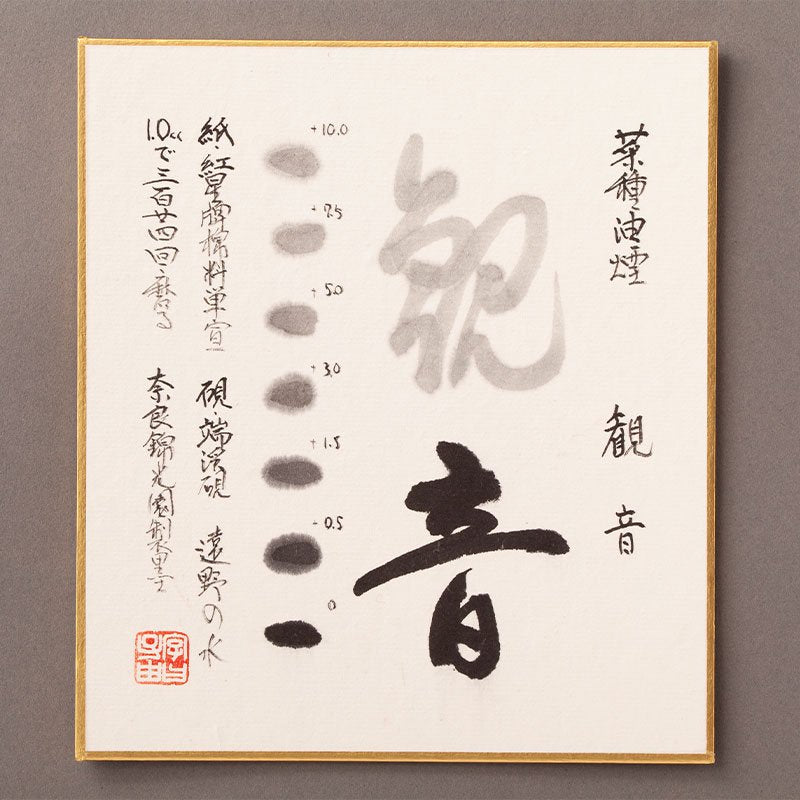 菜種油煙 観音
観音
+10.0
+7.5
+5.0
+3.0
+1.5
+0.5
0
紙・紅星牌棉料単宣 硯・端渓硯 遠野の水
1.0ccで三百廿四回磨る 奈良錦光園製墨